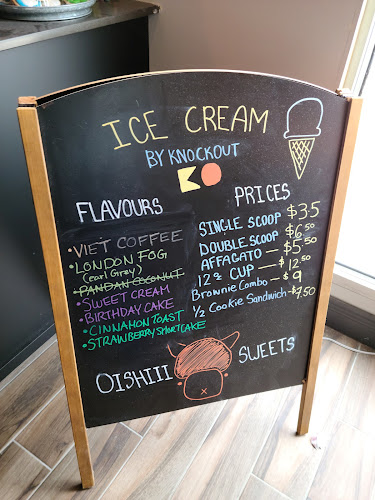 ICE CREAM
BY KNOCKOUT
KO
FLAVOURS
• VIET COFFEE
• LONDON FOG
(earl Grey)
• PANDAN COCONUT
• SWEET CREAM
• BIRTHDAY CAKE
• CINNAMON TOAST
• STRAWBERRY SHORTCAKE
PRICES
SINGLE SCOOP $3.5
DOUBLE SCOOP $6.50
AFFAGATO — $5.50
12oz CUP — $12.50
Brownie Combo — $9
1/2 Cookie Sandwich - $7.50
OISHIII SWEETS